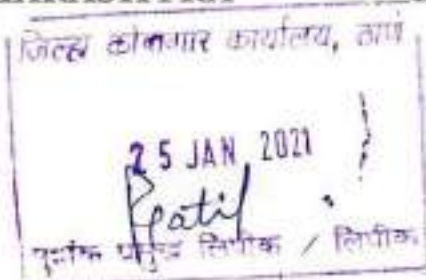 जिल्हा कोषागार कार्यालय, ठाणे
25 JAN 2021
Patil
मुद्रांक प्रमुख लिपीक / लिपीक